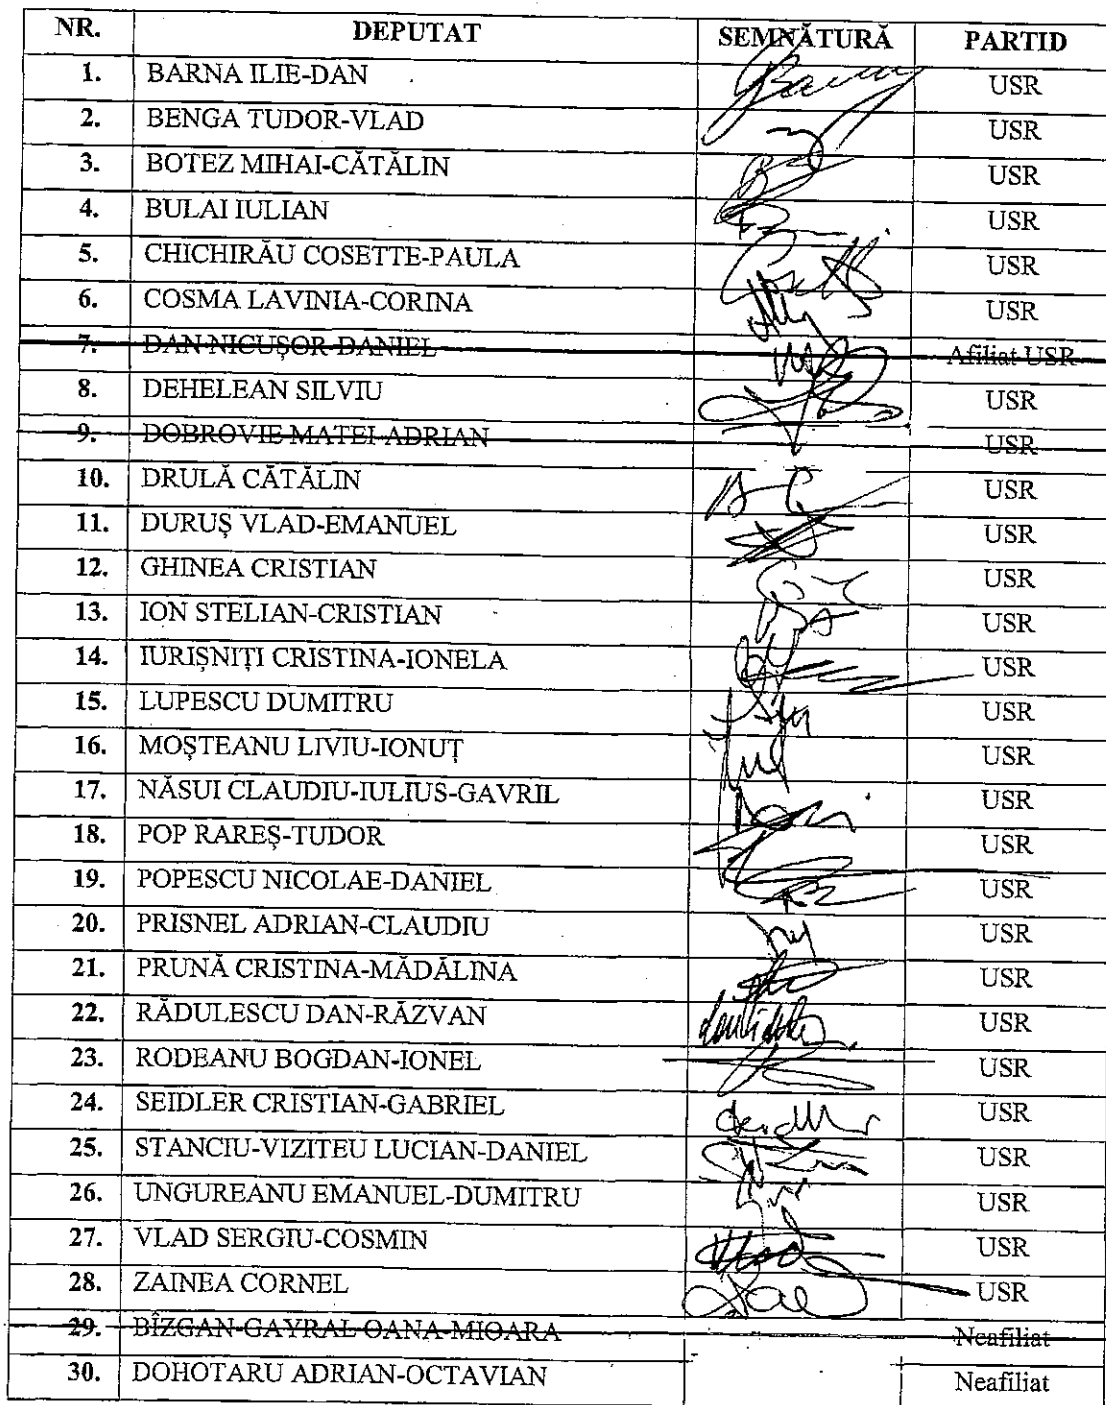 NR. DEPUTAT SEMNĂTURĂ PARTID
1. BARNA ILIE-DAN USR
2. BENGA TUDOR-VLAD USR
3. BOTEZ MIHAI-CĂTĂLIN USR
4. BULAI IULIAN USR
5. CHICHIRĂU COSETTE-PAULA USR
6. COSMA LAVINIA-CORINA USR
7. DAN NICUȘOR-DANIEL Afiliat USR
8. DEHELEAN SILVIU USR
9. DOBROVIE MATEI-ADRIAN USR
10. DRULĂ CĂTĂLIN USR
11. DURUȘ VLAD-EMANUEL USR
12. GHINEA CRISTIAN USR
13. ION STELIAN-CRISTIAN USR
14. IURIȘNIȚI CRISTINA-IONELA USR
15. LUPESCU DUMITRU USR
16. MOȘTEANU LIVIU-IONUȚ USR
17. NĂSUI CLAUDIU-IULIUS-GAVRIL USR
18. POP RAREȘ-TUDOR USR
19. POPESCU NICOLAE-DANIEL USR
20. PRISNEL ADRIAN-CLAUDIU USR
21. PRUNĂ CRISTINA-MĂDĂLINA USR
22. RĂDULESCU DAN-RĂZVAN USR
23. RODEANU BOGDAN-IONEL USR
24. SEIDLER CRISTIAN-GABRIEL USR
25. STANCIU-VIZITEU LUCIAN-DANIEL USR
26. UNGUREANU EMANUEL-DUMITRU USR
27. VLAD SERGIU-COSMIN USR
28. ZAINEA CORNEL USR
29. BÎZGAN-GAYRAL OANA-MIOARA Neafiliat
30. DOHOTARU ADRIAN-OCTAVIAN Neafiliat